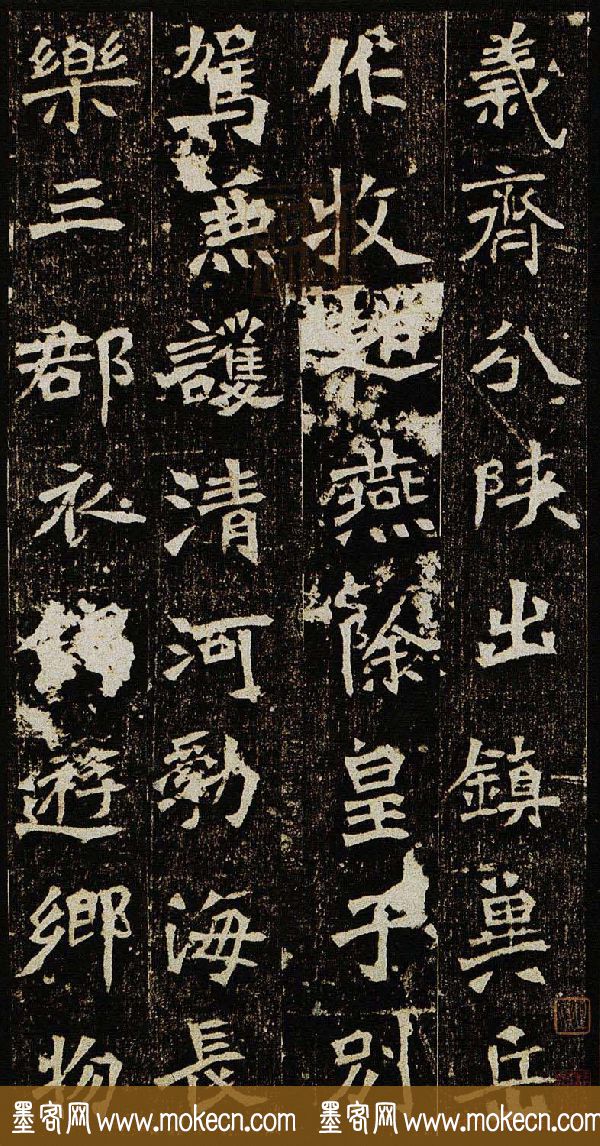 義齊分陝出鎮冀岳
作牧趙燕除皇子別
駕兼護清河勃海長
樂三郡衣錦遊鄉物
墨客网 www.mokecn.com 墨客网 www.mokecn.com